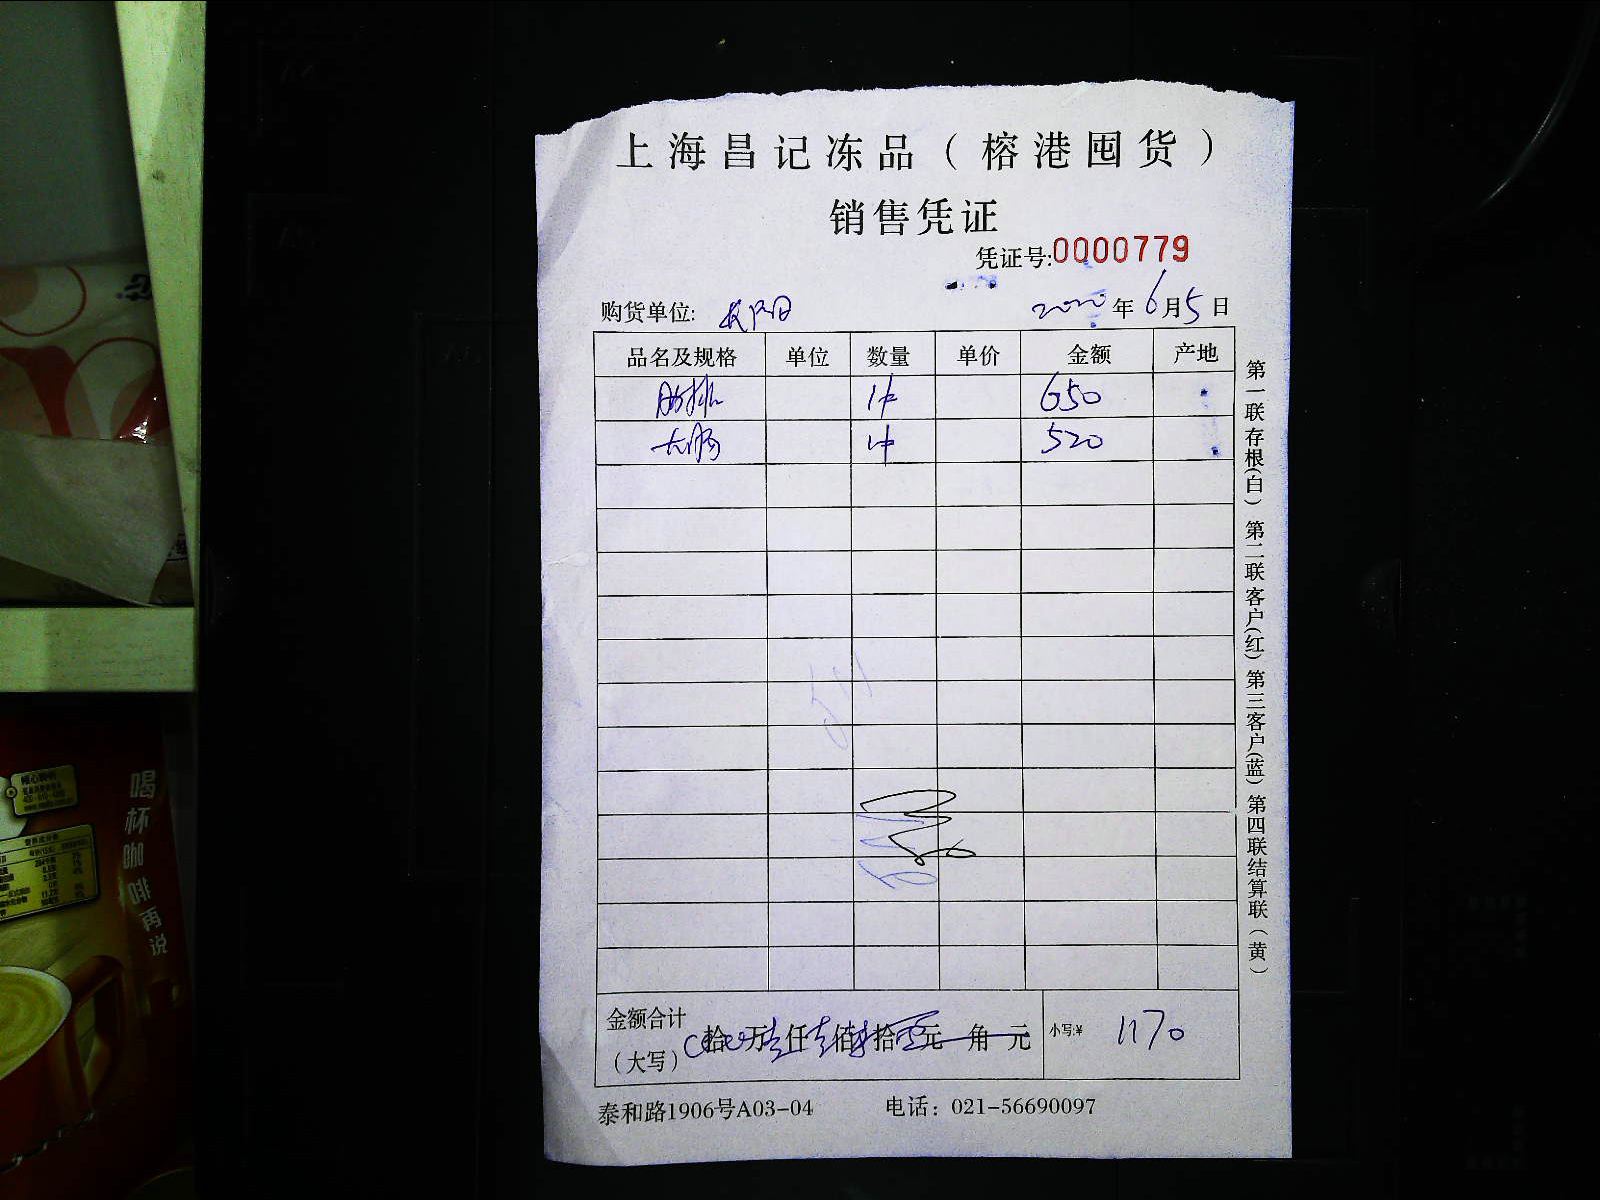 上海昌记冻品（榕港囤货）
销售凭证
凭证号:0000779
购货单位: 2020年6月5日
品名及规格 单位 数量 单价 金额 产地
肋排 1件 650
大肠 1件 520
金额合计（大写） 拾 万壹仟壹佰柒拾零元 角 元 小写:¥ 1170
泰和路1906号A03-04 电话：021-56690097
第一联存根(白) 第二联客户(红) 第三客户(蓝) 第四联结算联(黄)
喝杯咖啡再说